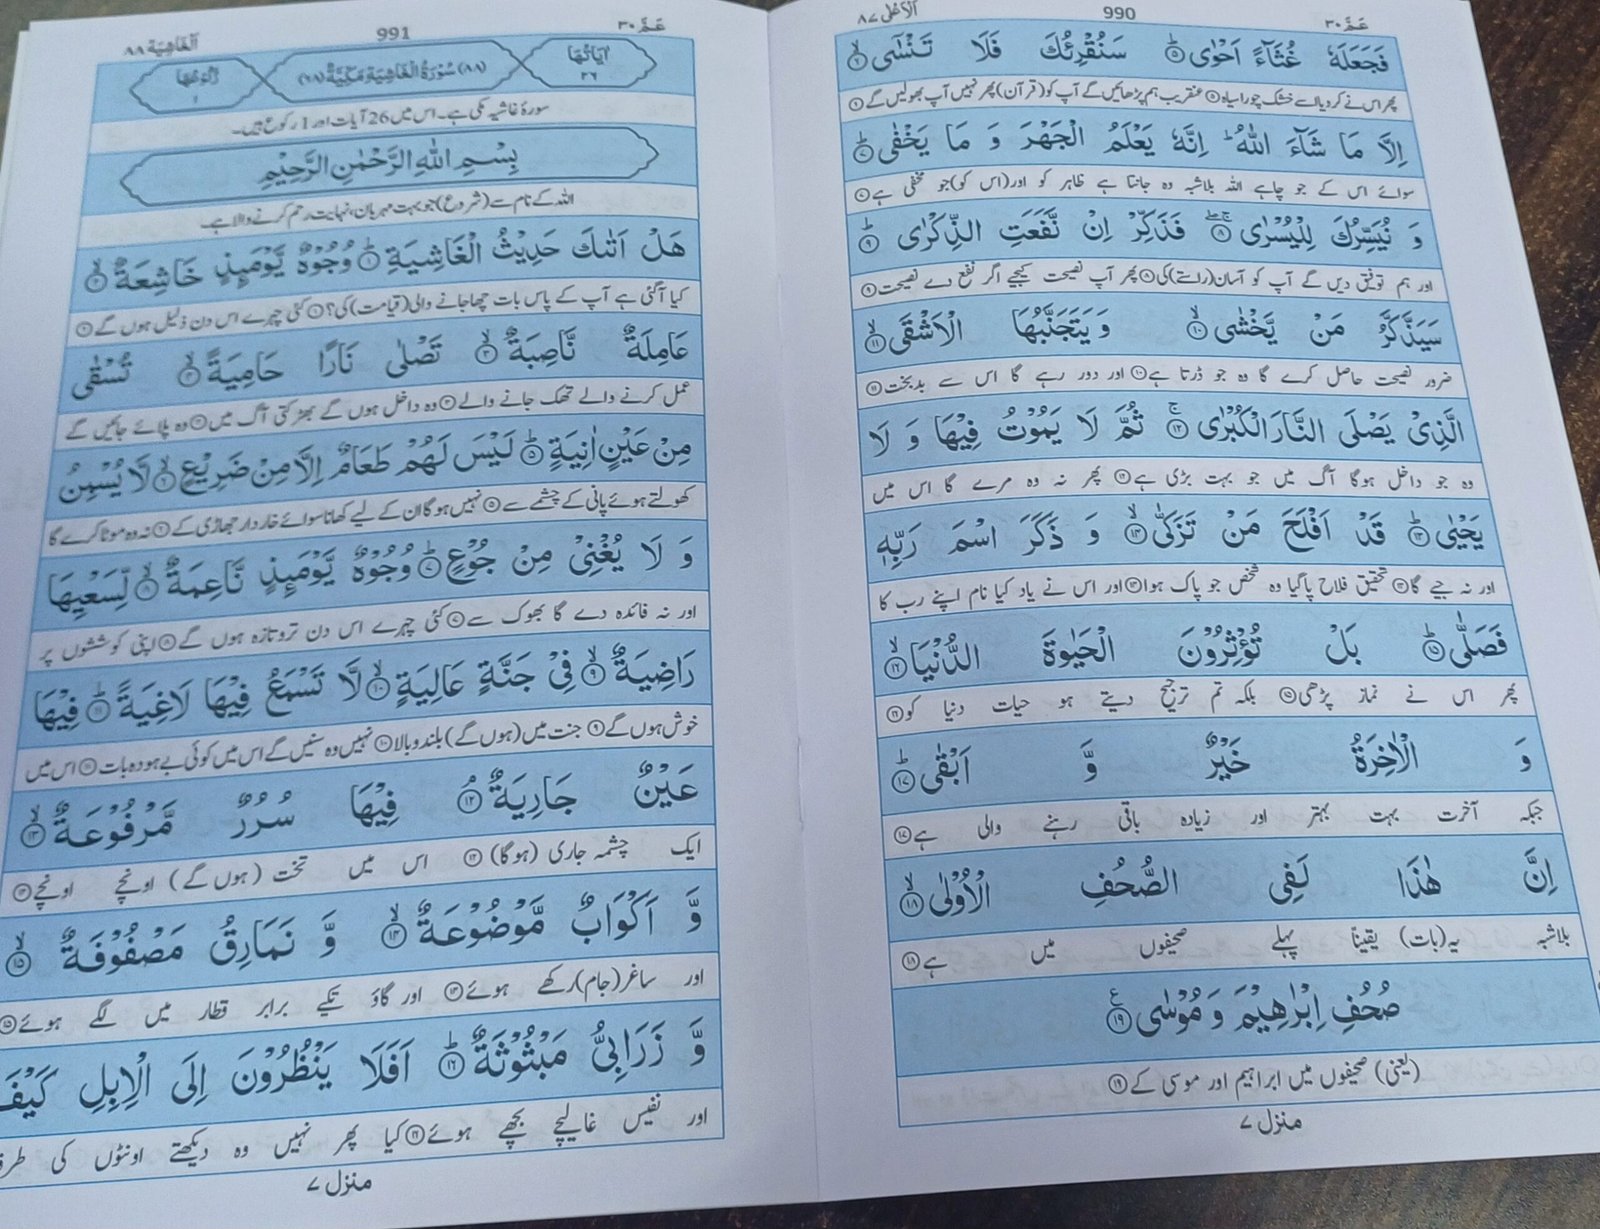 عَمَّ ٣٠
990
اَلْاَعْلٰى ٨٧
فَجَعَلَهٗ غُثَآءً اَحْوٰى ⑤ؕ سَنُقْرِئُكَ فَلَا تَنْسٰٓى ⑥ۙ
پھر اس نے کر دیا اسے خشک چورا سیاہ⑤ عنقریب ہم پڑھائیں گے آپ کو (قرآن) پھر نہیں آپ بھولیں گے⑥
اِلَّا مَا شَآءَ اللّٰهُ ؕ اِنَّهٗ يَعْلَمُ الْجَهْرَ وَ مَا يَخْفٰى ⑦ؕ
سوائے اس کے جو چاہے اللہ بلاشبہ وہ جانتا ہے ظاہر کو اور (اس کو) جو مخفی ہے⑦
وَ نُيَسِّرُكَ لِلْيُسْرٰى ⑧ فَذَكِّرْ اِنْ نَّفَعَتِ الذِّكْرٰى ⑨ؕ
اور ہم توفیق دیں گے آپ کو آسان (راستے) کی⑧ پھر آپ نصیحت کیجیے اگر نفع دے نصیحت⑨
سَيَذَّكَّرُ مَنْ يَّخْشٰى ⑩ۙ وَ يَتَجَنَّبُهَا الْاَشْقَى ⑪ۙ
ضرور نصیحت حاصل کرے گا وہ جو ڈرتا ہے⑩ اور دور رہے گا اس سے بدبخت⑪
الَّذِيْ يَصْلَى النَّارَ الْكُبْرٰى ⑫ۚ ثُمَّ لَا يَمُوْتُ فِيْهَا وَ لَا
وہ جو داخل ہوگا آگ میں جو بہت بڑی ہے⑫ پھر نہ وہ مرے گا اس میں
يَحْيٰى ⑬ؕ قَدْ اَفْلَحَ مَنْ تَزَكّٰى ⑭ۙ وَ ذَكَرَ اسْمَ رَبِّهٖ
اور نہ جیے گا⑬ تحقیق فلاح پا گیا وہ شخص جو پاک ہوا⑭ اور اس نے یاد کیا نام اپنے رب کا
فَصَلّٰى ⑮ؕ بَلْ تُؤْثِرُوْنَ الْحَيٰوةَ الدُّنْيَا ⑯ۙ
پھر اس نے نماز پڑھی⑮ بلکہ تم ترجیح دیتے ہو حیات دنیا کو⑯
وَ الْاٰخِرَةُ خَيْرٌ وَّ اَبْقٰى ⑰ؕ
جبکہ آخرت بہت بہتر اور زیادہ باقی رہنے والی ہے⑰
اِنَّ هٰذَا لَفِي الصُّحُفِ الْاُوْلٰى ⑱ۙ
بلاشبہ یہ (بات) یقیناً پہلے صحیفوں میں ہے⑱
صُحُفِ اِبْرٰهِيْمَ وَ مُوْسٰى ⑲ع
(یعنی) صحیفوں میں ابراہیم اور موسی کے⑲
منزل ٧
عَمَّ ٣٠
991
اَلْغَاشِيَة ٨٨
اٰيَاتُهَا ٢٦
(٨٨) سُوْرَةُ الْغَاشِيَةِ مَكِّيَّةٌ (٦٨)
رُكُوْعُهَا ١
سورۂ غاشیہ مکی ہے۔ اس میں 26 آیات اور 1 رکوع ہیں۔
بِسْمِ اللّٰهِ الرَّحْمٰنِ الرَّحِيْمِ
اللہ کے نام سے (شروع) جو بہت مہربان، نہایت رحم کرنے والا ہے۔
هَلْ اَتٰىكَ حَدِيْثُ الْغَاشِيَةِ ①ؕ وُجُوْهٌ يَّوْمَىِٕذٍ خَاشِعَةٌ ②ۙ
کیا آگئی ہے آپ کے پاس بات چھا جانے والی (قیامت) کی؟① کئی چہرے اس دن ذلیل ہوں گے②
عَامِلَةٌ نَّاصِبَةٌ ③ۙ تَصْلٰى نَارًا حَامِيَةً ④ۙ تُسْقٰى
عمل کرنے والے تھک جانے والے③ وہ داخل ہوں گے بھڑکتی آگ میں④ وہ پلائے جائیں گے
مِنْ عَيْنٍ اٰنِيَةٍ ⑤ؕ لَيْسَ لَهُمْ طَعَامٌ اِلَّا مِنْ ضَرِيْعٍ ⑥ۙ لَّا يُسْمِنُ
کھولتے ہوئے پانی کے چشمے سے⑤ نہیں ہوگا ان کے لیے کھانا سوائے خاردار جھاڑی کے⑥ نہ وہ موٹا کرے گا
وَ لَا يُغْنِيْ مِنْ جُوْعٍ ⑦ؕ وُجُوْهٌ يَّوْمَىِٕذٍ نَّاعِمَةٌ ⑧ۙ لِّسَعْيِهَا
اور نہ فائدہ دے گا بھوک سے⑦ کئی چہرے اس دن تروتازہ ہوں گے⑧ اپنی کوششوں پر
رَاضِيَةٌ ⑨ۙ فِيْ جَنَّةٍ عَالِيَةٍ ⑩ۙ لَّا تَسْمَعُ فِيْهَا لَاغِيَةً ⑪ؕ فِيْهَا
خوش ہوں گے⑨ جنت میں (ہوں گے) بلند و بالا⑩ نہیں وہ سنیں گے اس میں کوئی بے ہودہ بات⑪ اس میں
عَيْنٌ جَارِيَةٌ ⑫ۘ فِيْهَا سُرُرٌ مَّرْفُوْعَةٌ ⑬ۙ
ایک چشمہ جاری (ہوگا)⑫ اس میں تخت (ہوں گے) اونچے اونچے⑬
وَّ اَكْوَابٌ مَّوْضُوْعَةٌ ⑭ۙ وَّ نَمَارِقُ مَصْفُوْفَةٌ ⑮ۙ
اور ساغر (جام) رکھے ہوئے⑭ اور گاؤ تکیے برابر قطار میں لگے ہوئے⑮
وَّ زَرَابِيُّ مَبْثُوْثَةٌ ⑯ؕ اَفَلَا يَنْظُرُوْنَ اِلَى الْاِبِلِ كَيْفَ
اور نفیس غالیچے بچھے ہوئے⑯ کیا پھر نہیں وہ دیکھتے اونٹوں کی طرف
منزل ٧